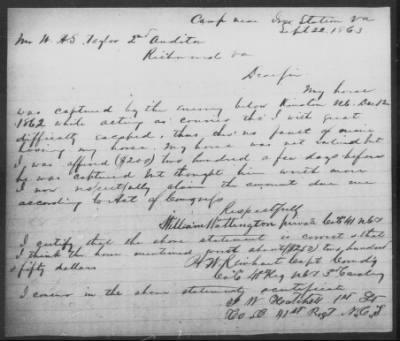 Camp near Ivor Station Va
Sept 22 1863
Mr W. H. S. Taylor 2nd Auditor
Richmond Va
Dear Sir
My horse
was captured by the enemy below Kinston N.C. Dec
1862 while acting as courier tho' I with great
difficulty escaped, thus, tho' no fault of mine
loosing my horse. My horse was not valued but
I was offered ($200) two hundred a few days before
he was captured but thought him worth more
I now respectfully claim the amount due me
according to Act of Congress
Respectfully
William Wattington private Co 41 N.C.T.
I certify that the above statement is correct & that
I think the horse mentioned worth about ($250) two hundred
& fifty dollars
Capt Comdg
Co 41 Reg N.C.T. 3d Cavalry
I concur in the above statement & certificate
1st Lt
Co 41st Regt N.C.T.